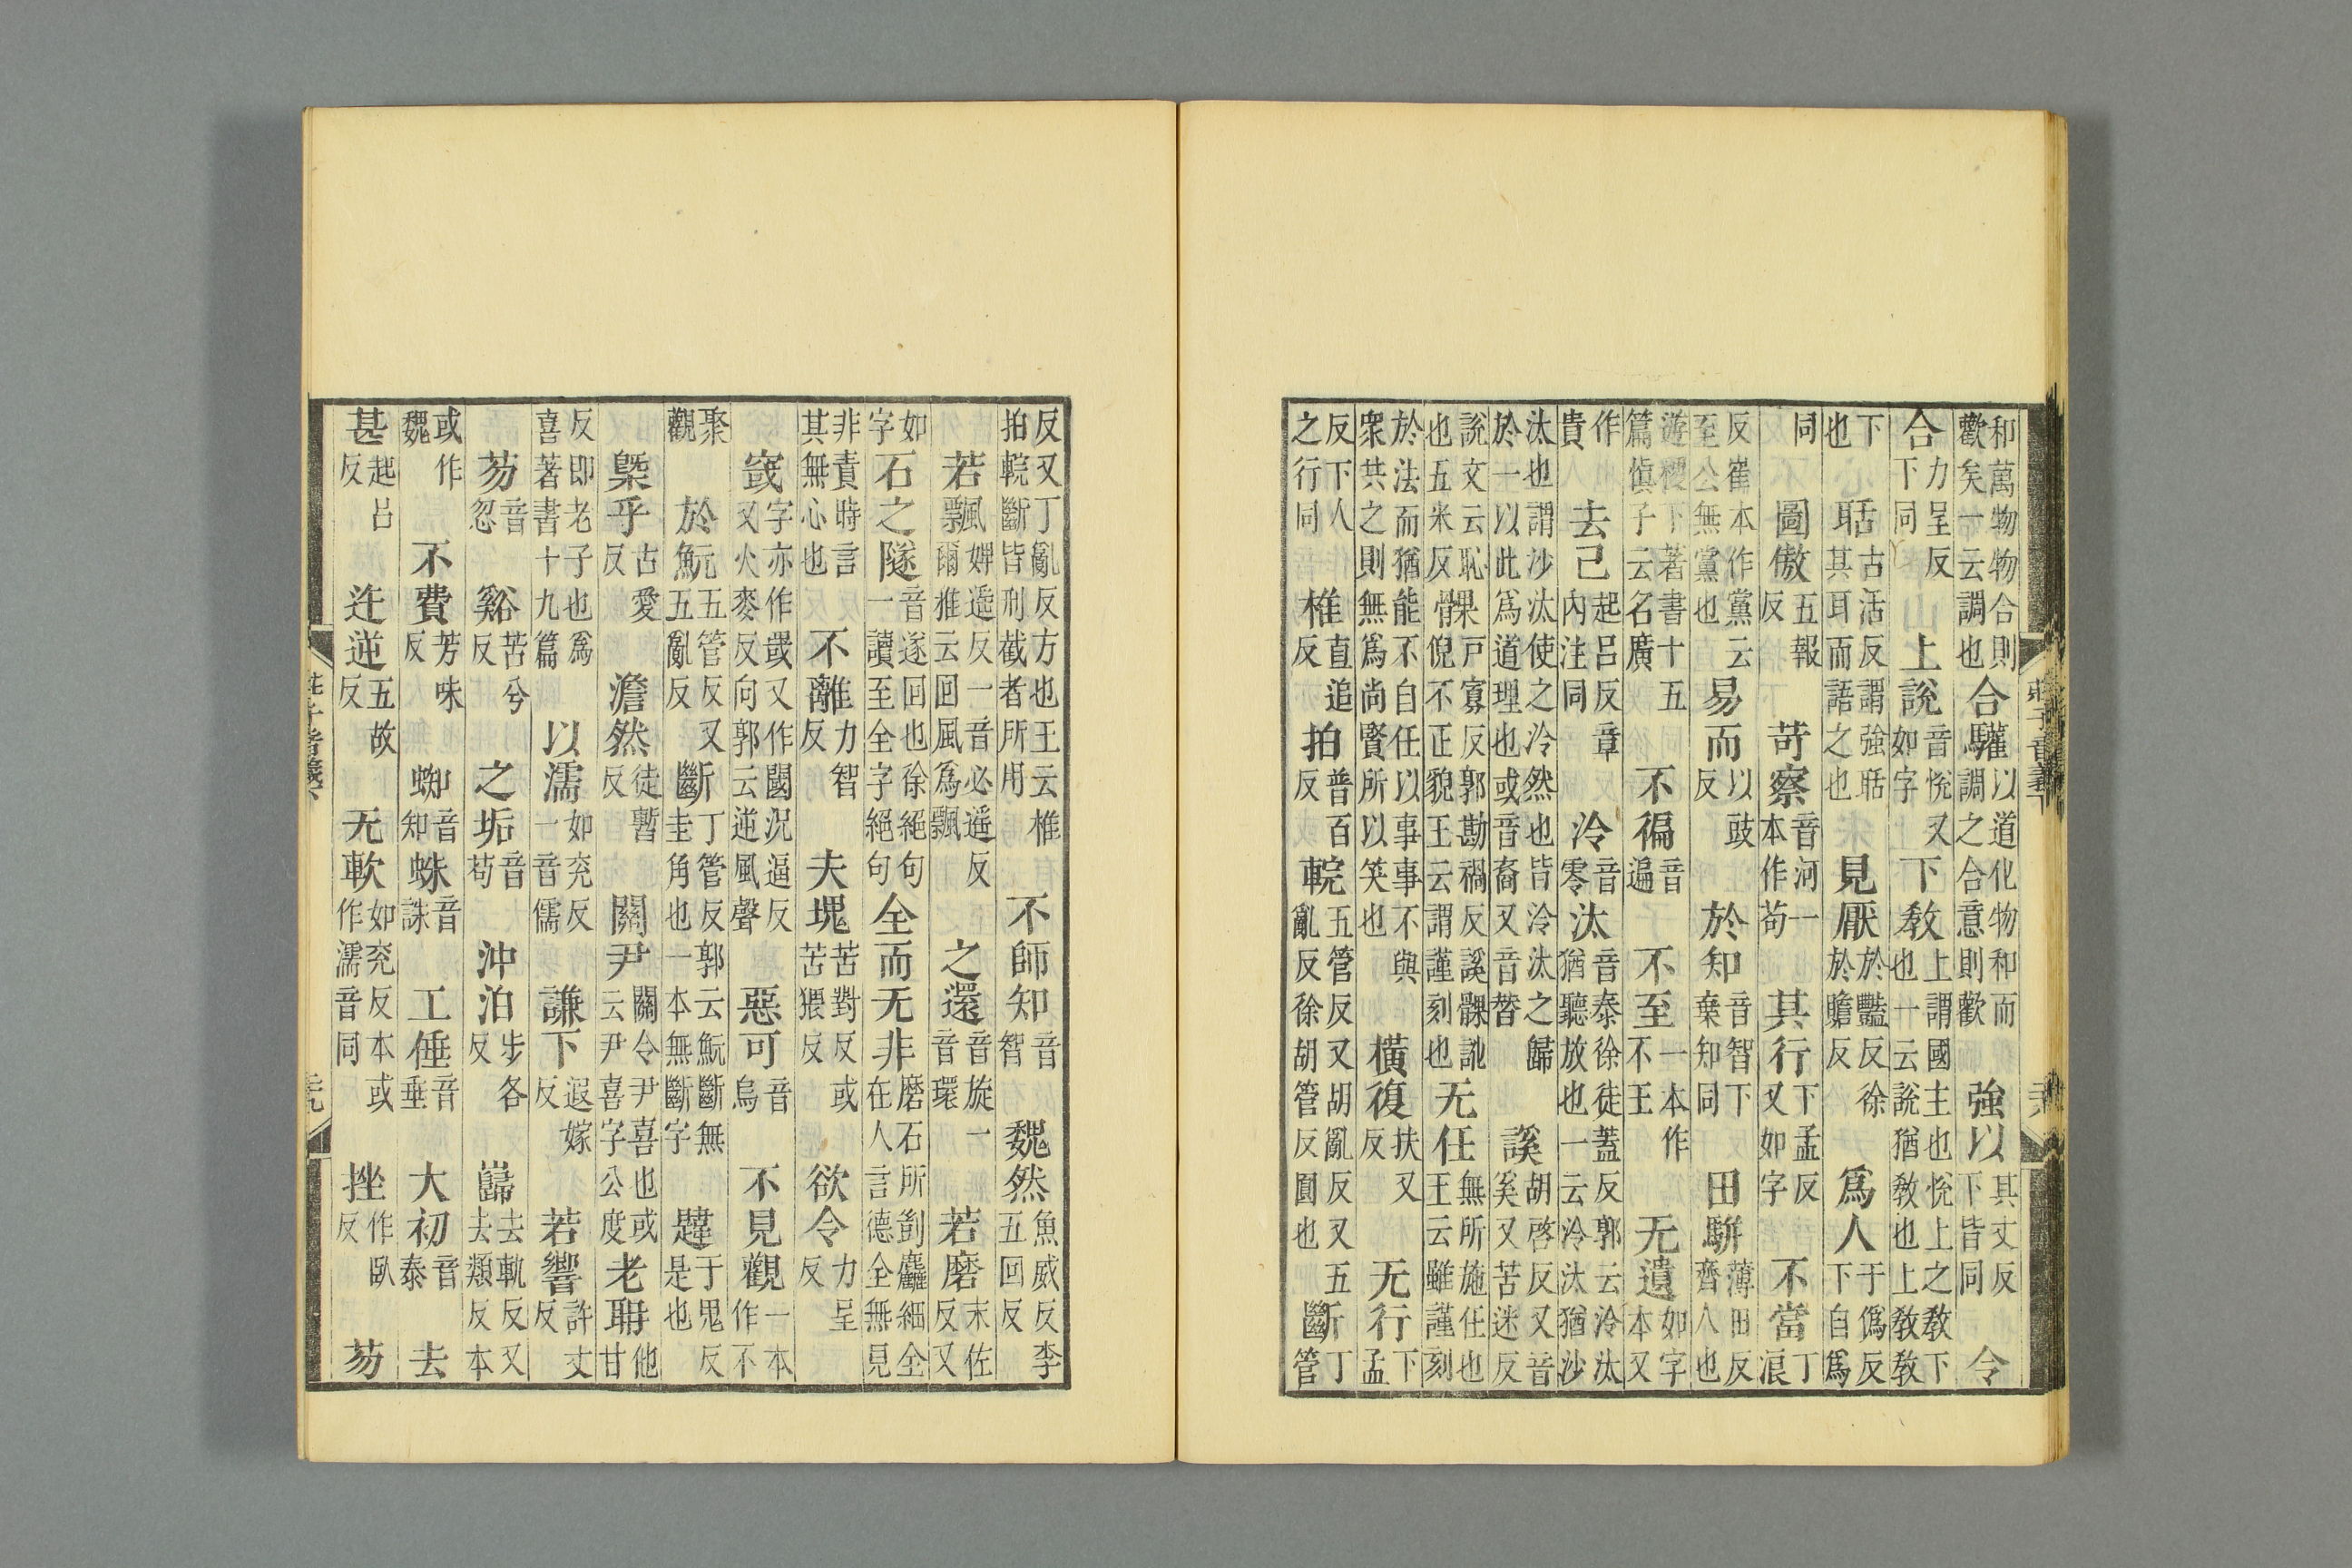 莊子音義下
和萬物物合則歡矣一云調也合驩以道化物和而調之合意則歡強以其丈反下皆同令
合力呈反下同上說音悅又如字下教上謂國主也悅上之教下也一云說猶教也上教教
下也聒古活反謂強聒其耳而語之也見厭於豔反徐於贍反爲人于僞反下自爲
同圖傲五報反苛察音河一本作苟其行下孟反又如字不當丁浪
反崔本作黨云至公無黨也易而以豉反於知音智下棄知同田駢薄田反齊人也
遊稷下著書十五篇愼子云名廣不徧音遍不至一本作不王无遺如字本又
作貴去己起呂反章內注同泠音零汰音泰徐徒蓋反郭云泠汰猶聽放也一云泠汰猶沙
汰也謂沙汰使之泠然也皆泠汰之歸於一以此爲道理也或音裔又音替謑胡啓反又音奚又苦迷反
說文云恥也五米反髁戸寡反郭勘禍反謑髁訑倪不正貌王云謂謹刻也无任無所施任也王云雖謹刻
於法而猶能不自任以事事不與衆共之則無爲尚賢所以笑也橫復扶又反无行下孟
反下人之行同椎直追反拍普百反輐五管反又胡亂反又五亂反徐胡管反圓也斷丁管
反又丁亂反方也王云椎拍輐斷皆刑截者所用不師知音智魏然魚威反李五回反
若飄婢遥反一音必遥反爾雅云回風爲飄之還音旋一音環若磨末佐反又
如字石之隧音遂回也徐絕句一讀至全字絕句全而无非磨石所剴麤細全在人言德全無見
非責時言其無心也不離力智反夫塊苦對反或苦猥反欲令力呈反
窢字亦作罭又作閾況逼反又火麥反向郭云逆風聲惡可音烏不見觀一本作不
聚觀於魭五管反又五亂反斷丁管反郭云魭斷無圭角也一本無斷字韙于鬼反是也
槩乎古愛反澹然徒暫反關尹關令尹喜也或云尹喜字公度老耼他甘
反即老子也爲喜著書十九篇以濡如兖反一音儒謙下遐嫁反若響許丈反
芴音忽谿苦兮反之垢音苟沖泊步各反巋去軌反又去類反本
或作魏不費芳味反蜘音知蛛音誅工倕音垂大初音泰去
甚起呂反迕逆五故反无軟如兖反本或作濡音同挫作臥反芴
莊子音義下